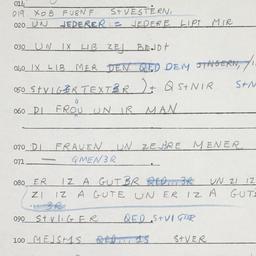 014
019 XOB FUENF StVESTERN.
020 UN JEDERER = JEDERE LIPT MIR
030 UN IX LIB ZEJ BEJDt
040 IX LIB MER DEN QED DEM JINGERN,
050 StVIGERTEXTER ): QStNIR StN
060 DI FROU UN IR MAN
070 DI FRAUEN UN ZEJRE MENER
071 — GMEN3R
080 ER IZ A GUTER UN ZI IZ
ZI IZ A GUTE UN ER IZ A GUT
090 StVIGER QED StVIGER
100 MEJSMS StVER